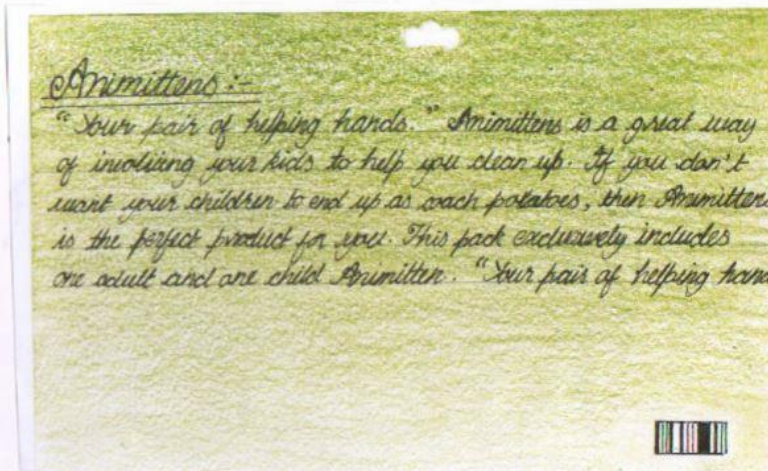 Animittens:-
"Your pair of helping hands." Animittens is a great way
of involving your kids to help you clean up. If you don't
want your children to end up as coach potatoes, then Animittens
is the perfect product for you. This pack exclusively includes
one adult and one child Animitten. "Your pair of helping hand